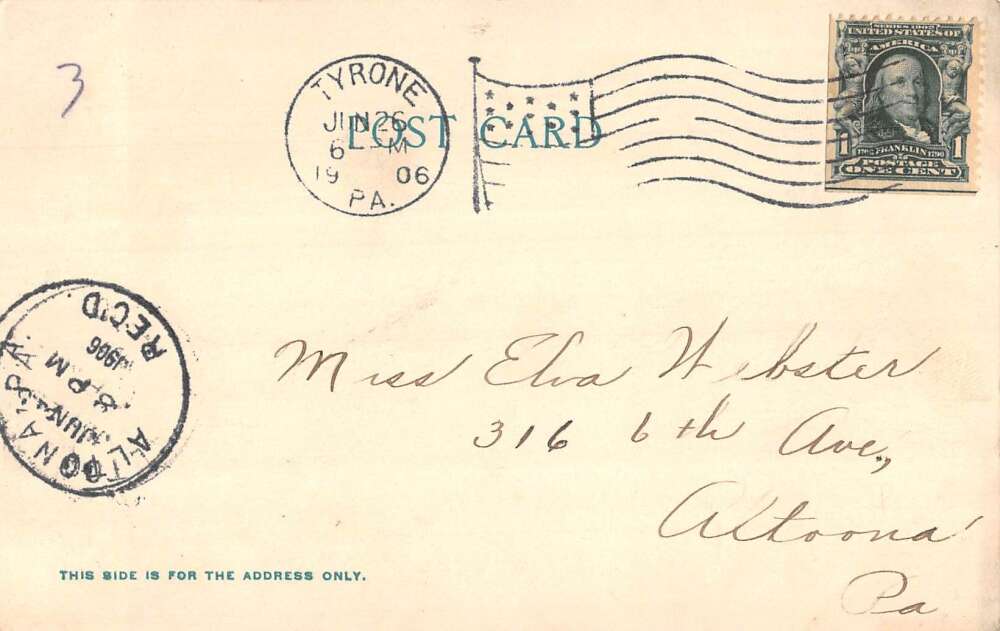 3
TYRONE
JUN 26
6 M
19 06
PA.
POST CARD
SERIES 1902
UNITED STATES OF
AMERICA
1 FRANKLIN 1790 1
POSTAGE
ONE CENT
ALTOONA, PA.
JUN
8 PM
1906
REC'D
Miss Elva Webster
316 6th Ave.,
Altoona
Pa
THIS SIDE IS FOR THE ADDRESS ONLY.